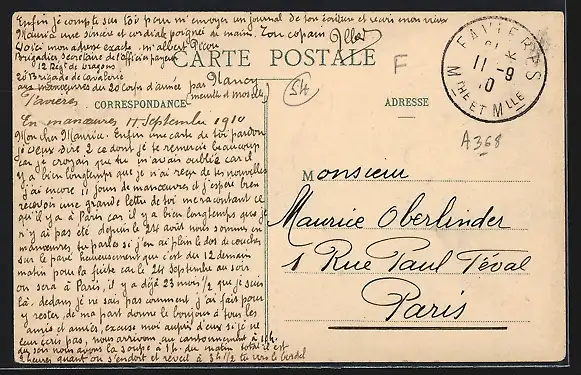 Enfin je compte sur toi pour m'envoyer un journal de ton écriture et recois mon vieux
Maurice une sincère et cordiale poignée de main. Ton copain
Voici mon adresse exacte. m. albert Picon
Brigadier, Secrétaire de l'Officier payeur
12 Régt de Dragons
2e Brigade de Cavalerie
aux manœuvres du 20 Corps d'armée par Nancy
Favières (meurthe et moselle)
CARTE POSTALE
CORRESPONDANCE
ADRESSE
FAVIERES
11 -9
10
MTHE ET MLLE
F
54
A368
En manœuvres 11 Septembre 1910
Mon cher Maurice. Enfin une carte de toi pardon
je veux dire 2 ce dont je te remercie beaucoup
car je croyais que tu m'avais oublié car il
y a bien longtemps que je n'ai reçu de tes nouvelles
j'ai encore 11 jours de manœuvres et j'espère bien
recevoir une grande lettre de toi me racontant ce
qu'il y a à Paris car il y a bien longtemps que je
n'y ai pas été depuis le 24 août nous sommes en
manœuvres, tu parles si j'en ai plein le dos de coucher
sur le pavé heureusement que c'est du 12 demain
matin pour la fuite car le 24 Septembre au soir
on sera à Paris, il y a déjà 23 mois 1/2 que je suis
là. dedans je ne sais pas comment j'ai fait pour
y rester, de ma part donne le bonjour à tous les
amis et amies, excuse moi auprès d'eux si je ne
leur écris pas, nous arrivons au cantonnement à
du soir nous avons la soupe à 1h. du matin total il est
2 heures quand on s'endort et réveil à 3h 1/2 tu vois le bordel
Monsieur
Maurice Oberlinder
1 Rue Paul Féval
Paris